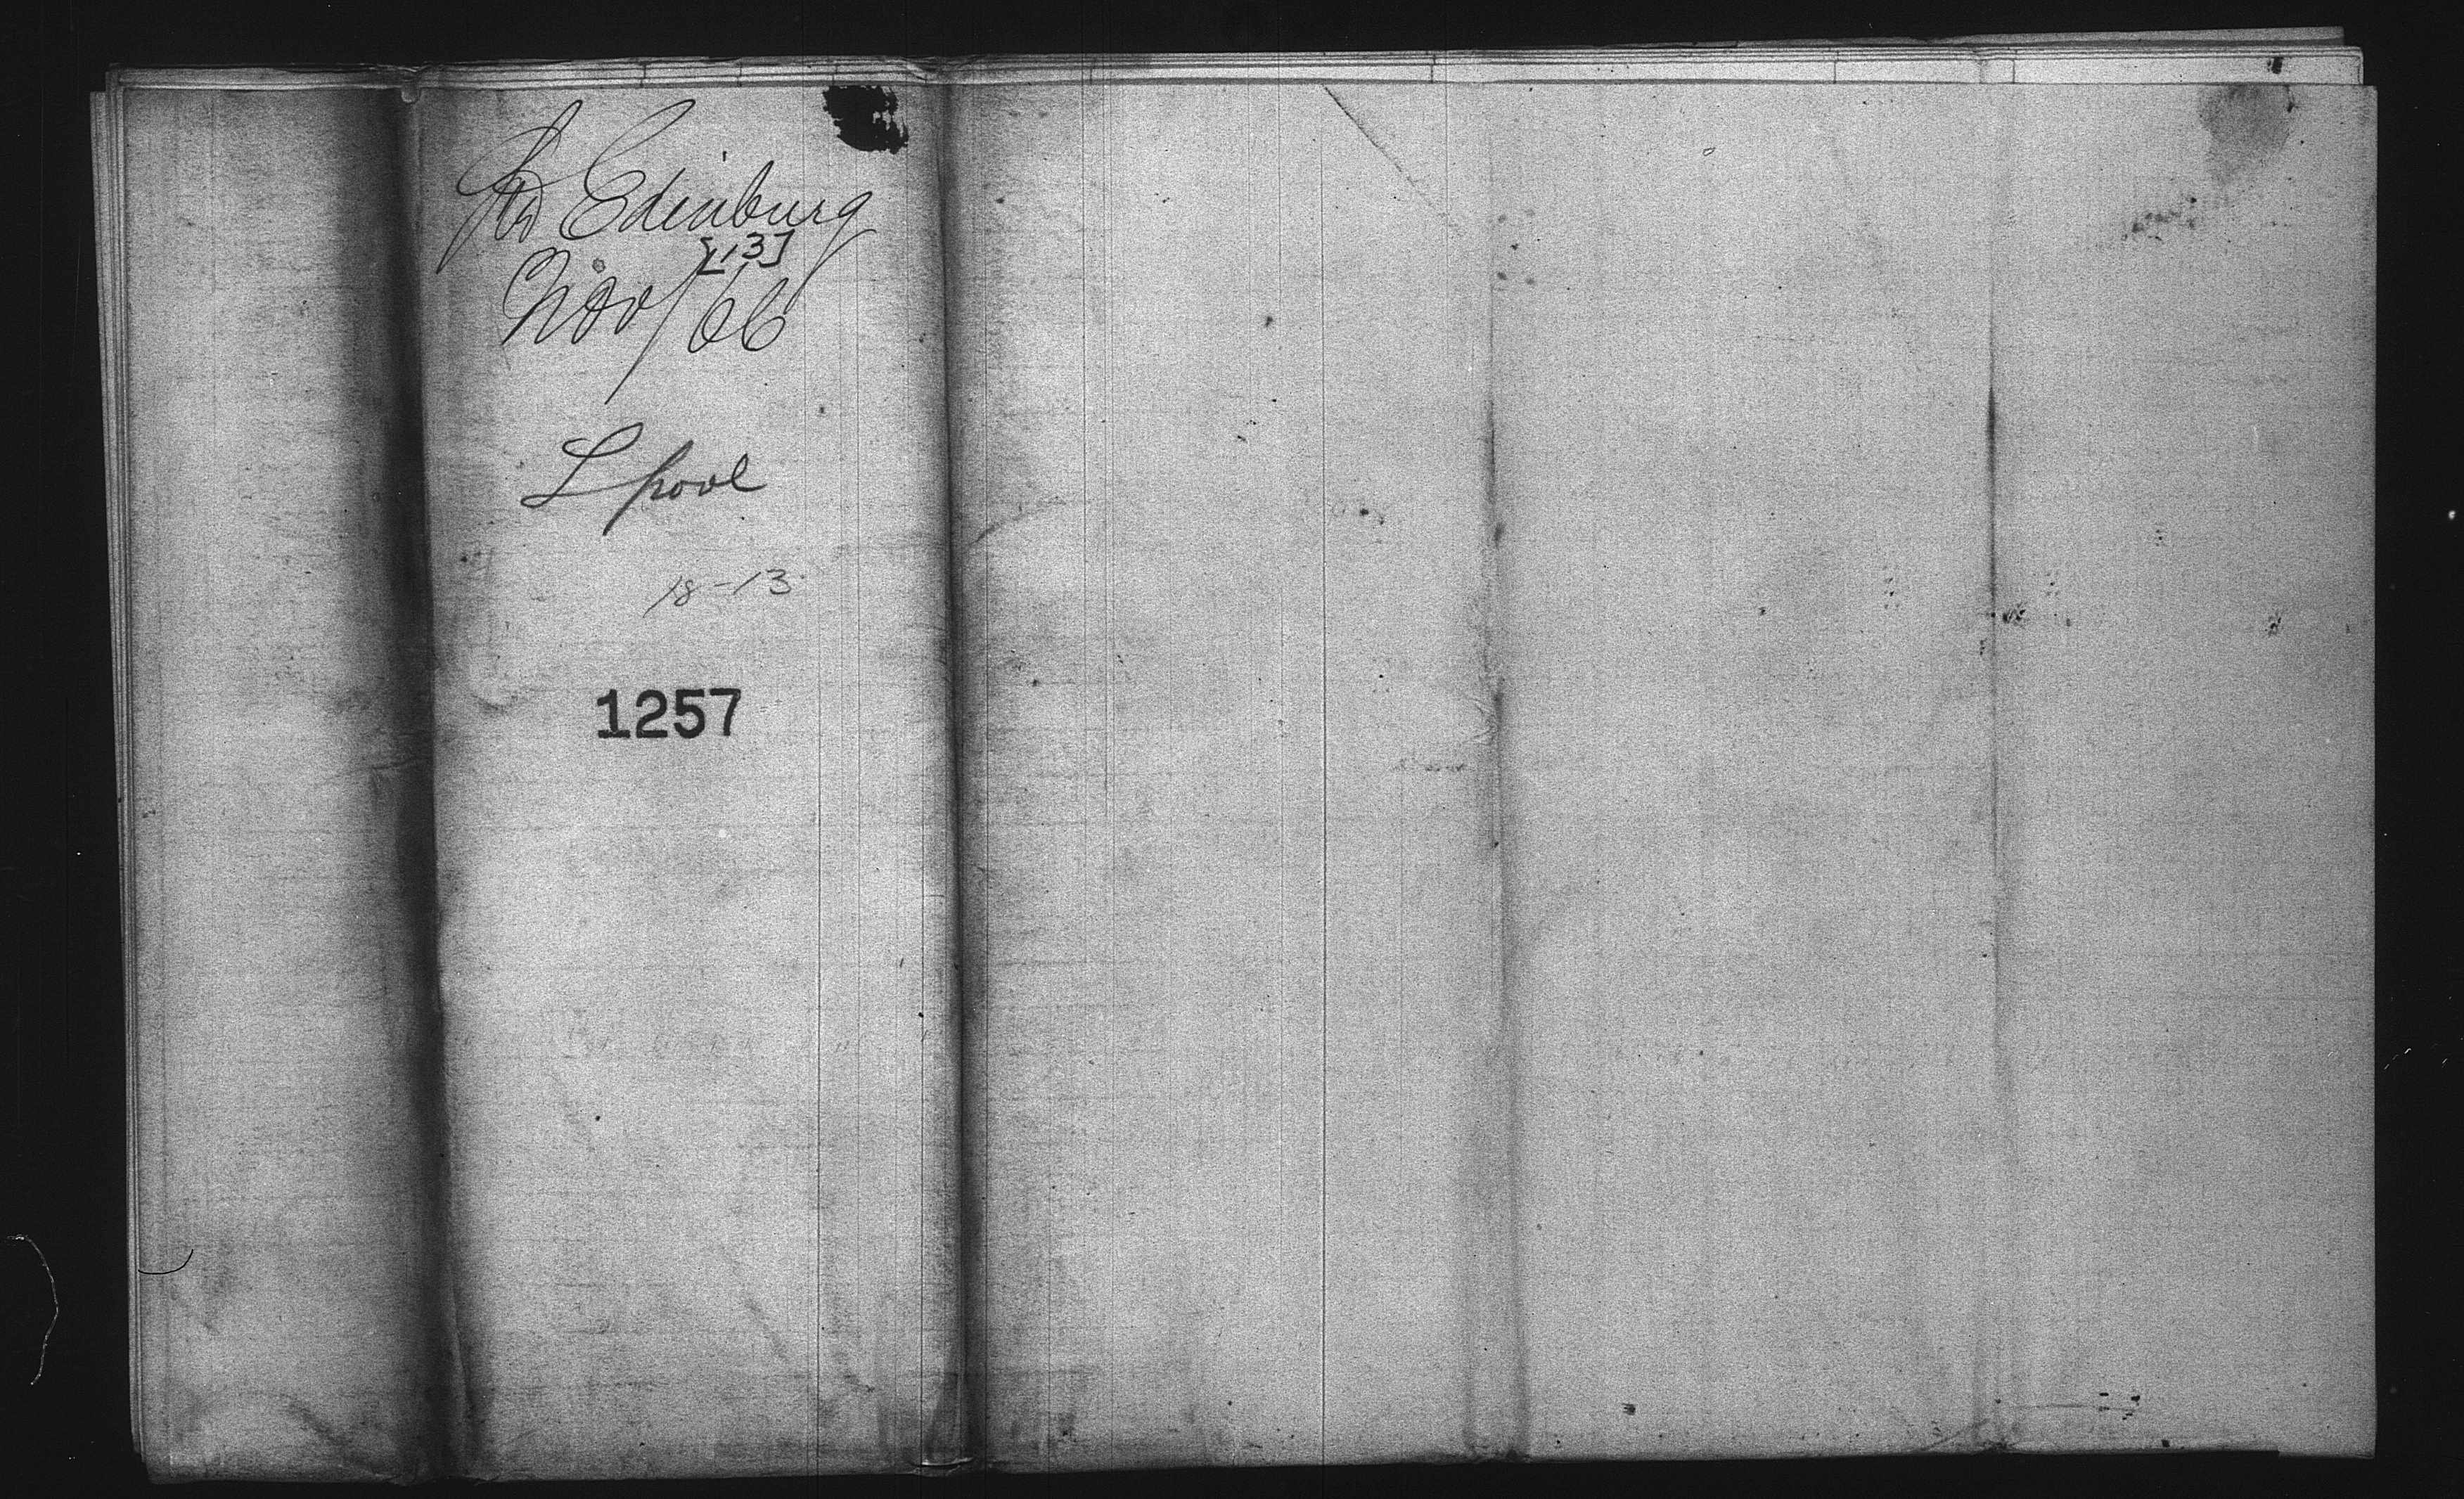 Edinburg
[13]
Nov/66
L pool
18-13
1257